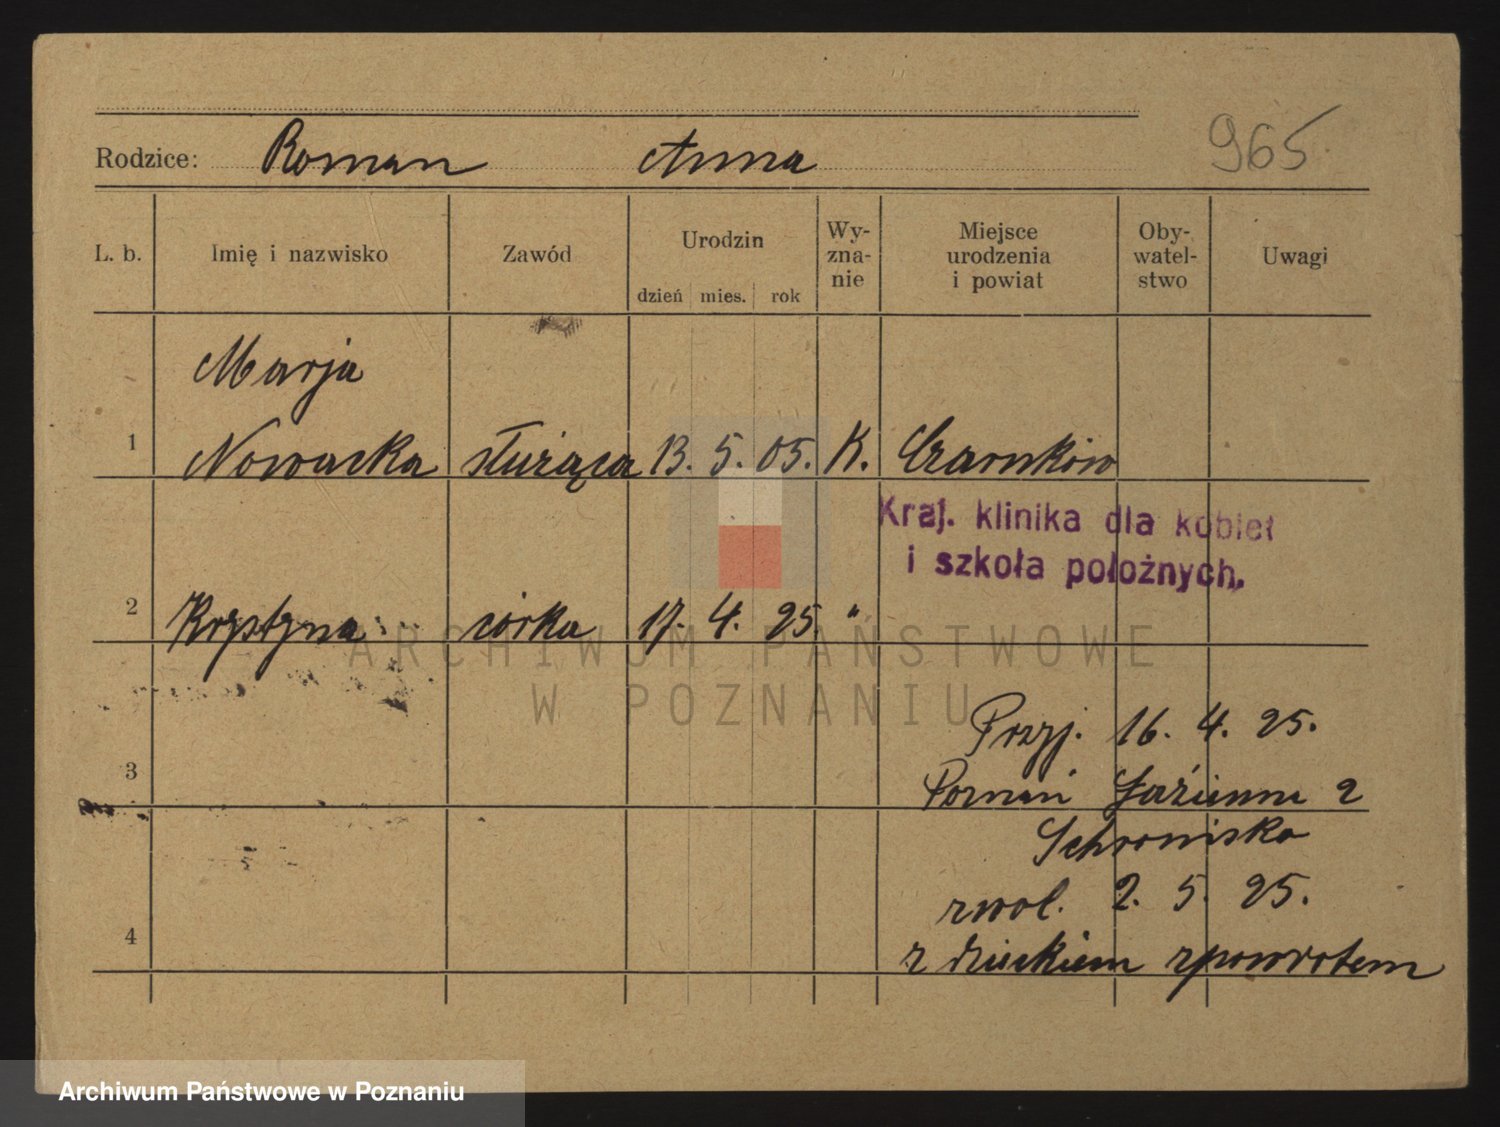 965
Rodzice: Roman Anna
L. b. Imię i nazwisko Zawód Urodzin dzień mies. rok Wy-zna-nie Miejsce urodzenia i powiat Oby-watel-stwo Uwagi
Marja
1 Nowacka służąca 13. 5. 05. K. Czarnków
Kraj. klinika dla kobiet
i szkoła położnych.
2 Krystyna córka 17. 4. 25. "
ARCHIWUM PAŃSTWOWE
W POZNANIU
Przyj. 16. 4. 25.
3
Poznań Łazienna 2
Schronisko
zwol. 2. 5. 25.
4
z dzieckiem zpowrotem
Archiwum Państwowe w Poznaniu